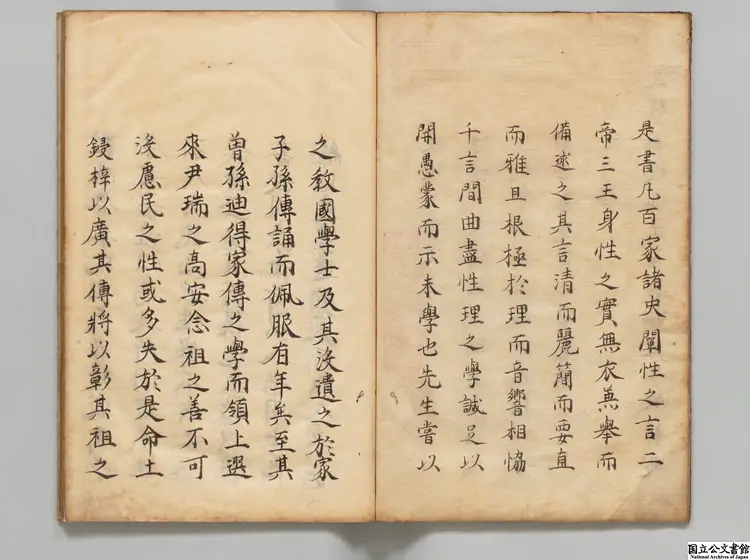 是書凡百家諸史闡性之言二
帝三王身性之實無衣兼舉而
備述之其言清而麗簡而要直
而雅且根極於理而音響相恊
千言間曲盡性理之學誠足以
開愚蒙而示未學也先生嘗以
之教國學士及其沒遺之於家
子孫傳誦而佩服有年矣至其
曾孫迪得家傳之學而領上選
來尹瑞之高安念祖之善不可
沒慮民之性或多失於是命工
鋟梓以廣其傳將以彰其祖之
国立公文書館
National Archives of Japan